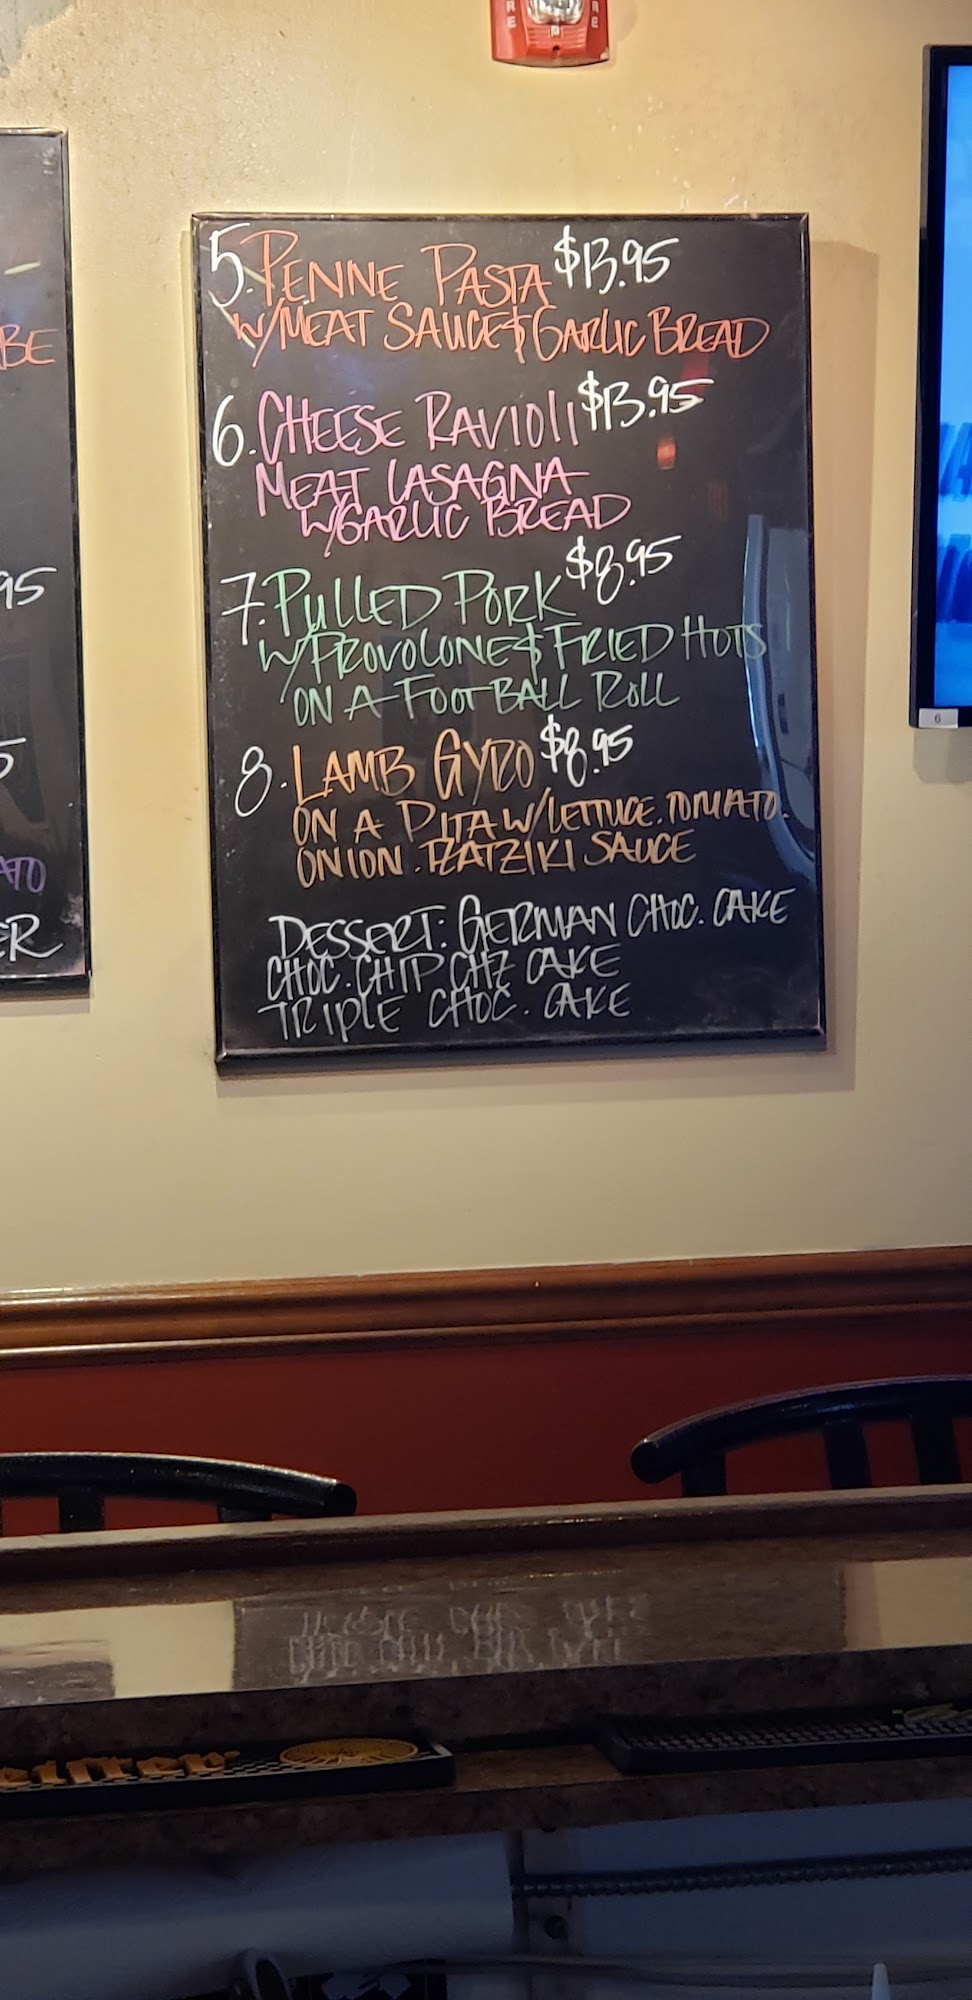 RE RE
5. PENNE PASTA $13.95
W/MEAT SAUCE & GARLIC BREAD
6. CHEESE RAVIOLI $13.95
MEAT LASAGNA
W/GARLIC BREAD
7. PULLED PORK $8.95
W/PROVOLONE & FRIED HOTS
ON A FOOTBALL ROLL
8. LAMB GYRO $8.95
ON A PITA W/LETTUCE. TOMATO.
ONION. TZATZIKI SAUCE
DESSERT: GERMAN CHOC. CAKE
CHOC. CHIP CHZ CAKE
TRIPLE CHOC. CAKE
BE
95
5
ATO
ER
6